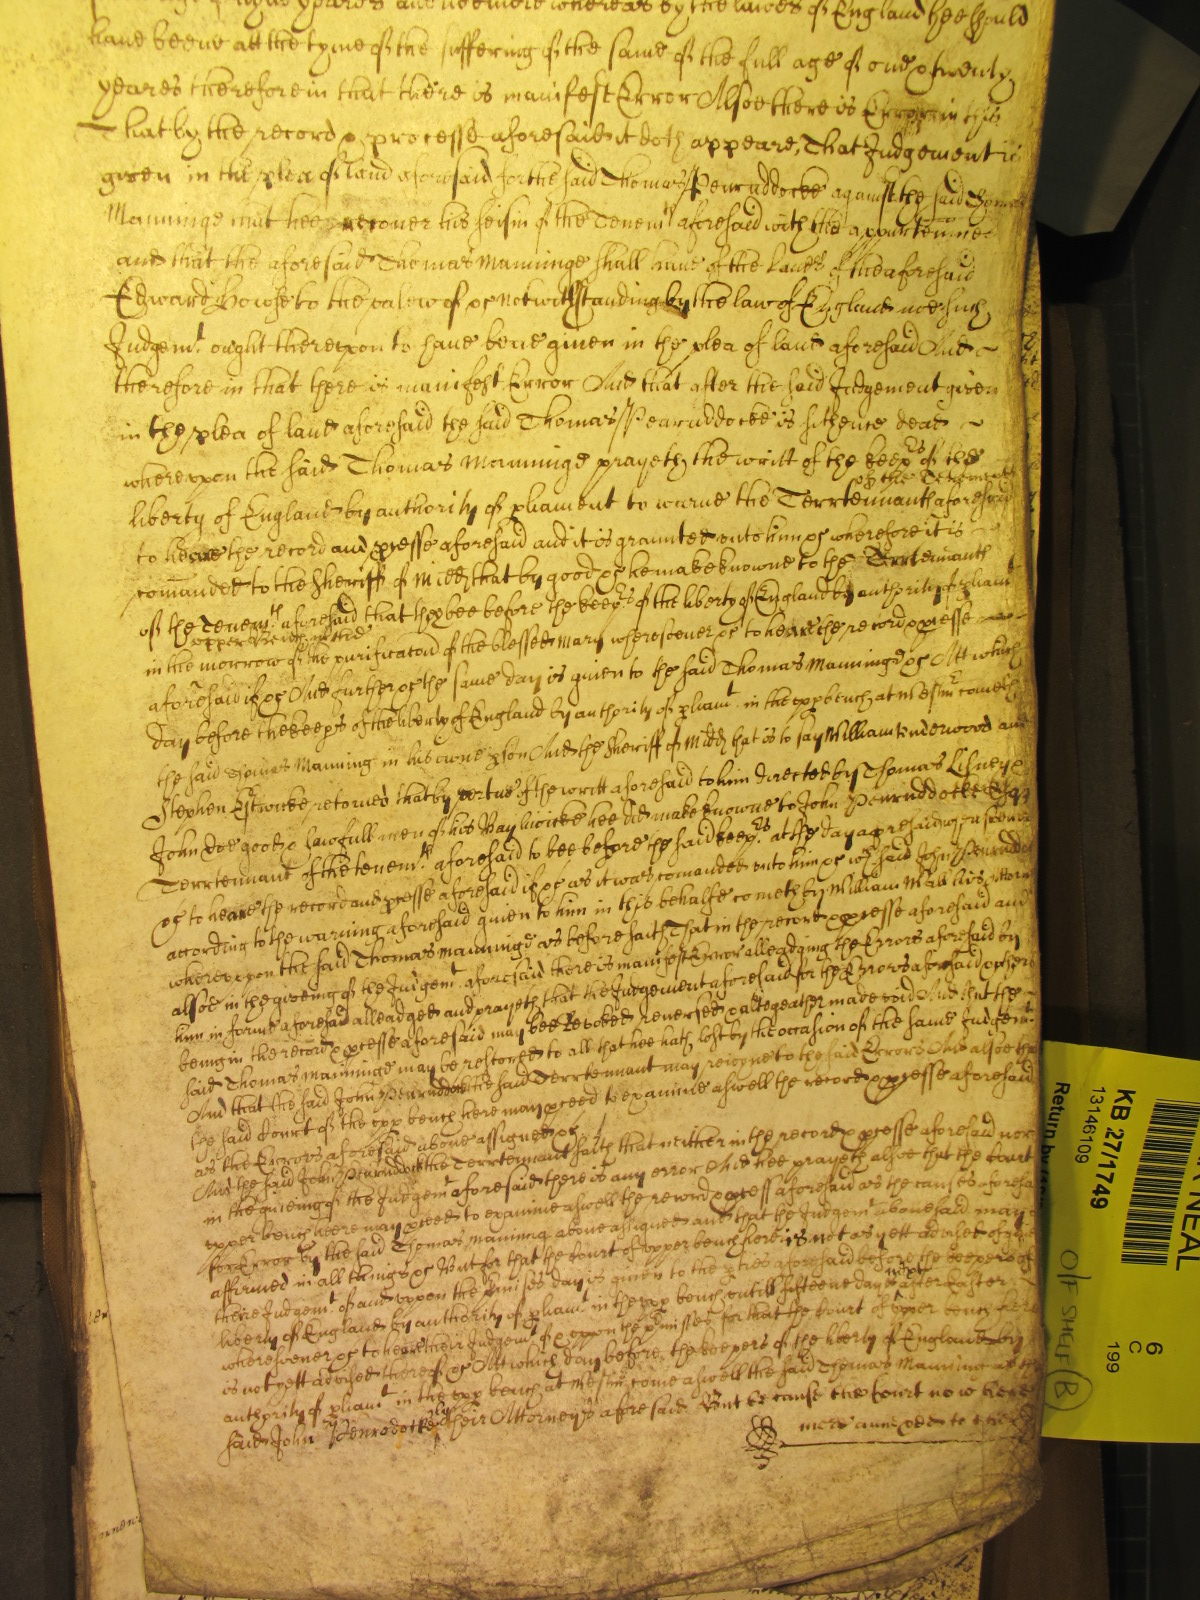 yeares and noe more whereas by the lawes of England hee should
have beene att the tyme of the suffering of the same of the full age of one & twenty
yeares therefore in that there is manifest Error Alsoe there is Error in this
That by the record & processe aforesaid it doth appeare, That Judgement is
given in the plea of land aforesaid for the said Thomas Penruddocke against the said Thomas
Manninge that hee recover his seisin of the Tenemts aforesaid with the appurtennces
and that the aforesaid Thomas Manninge shall have of the land of the aforesaid
Edward Howse to the valew &c Notwithstanding by the law of England noe such
Judgemt ought thereupon to have beene given in the plea of land aforesaid And
therefore in that there is manifest Error And that after the said Judgement given
in the plea of land aforesaid the said Thomas Penruddocke is sithence dead
whereupon the said Thomas Manninge prayeth the writt of the keeprs of the
liberty of England by authority of pliament to warne the Terrtennants of the Tenements aforesaid
to heare the record and pcesse aforesaid and it is graunted unto him &c wherefore it is
comanded to the Sheriff of Midd that by good &c he make knowne to the Terrtennants
of the Tenemts aforesaid that they bee before the keeprs of the liberty of England by authority of pliamt
in the upper Bench in the morrow of the purificacon of the blessed Mary wheresoever &c to heare the record & pcesse
aforesaid if &c And further &c the same day is given to the said Thomas Manninge &c Att which
day before the keeprs of the liberty of England by authority of pliamt in the upp bench at Westmr cometh
the said Thomas Manning in his owne pson And the Sheriff of Midd that is to say William Underwood and
Stephen Estwicke retorned that by vertue of the writt aforesaid to him directed by Thomas Lisney &
John Doe good & lawfull men of his Baylywicke hee did make knowne to John Penruddocke Esqr
Terrtennant of the tenemts aforesaid to bee before the said keeprs att the day aforesaid wheresoever
&c to heare the record and pcesse aforesaid if &c as it was comanded unto him &c wch said John Penruddocke
according to the warning aforesaid given to him in this behalfe cometh by William his Attorn
whereupon the said Thomas Manninge as before saith That in the record & pcesse aforesaid and
alsoe in the giveing of the Judgemt aforesaid there is manifest Error alleadging the Errors aforesaid by
him in forme aforesaid alleadged and prayeth that the Judgement aforesaid for the Errors aforesaid & others
being in the record & pcesse aforesaid may bee Revoked reversed & altogeather made void And that the
said Thomas Manninge may be restored to all that hee hath lost by the occasion of the same Judgemt
And that the said John Penruddocke the said Terrtennant may rejoyne to the said Errors And alsoe that
the said Court of the upp bench here may pceed to examine aswell the record & pcesse aforesaid
as the Errors aforesaid above assigned &c
And the said John Penruddocke the Terrtennant saith that neither in the record & pcesse aforesaid nor
in the giveing of the Judgemt aforesaid there is any error And hee prayeth alsoe that the Court
upper bench here may pceed to examine aswell the record & pcess aforesaid as the causes aforesaid
for Error by the said Thomas Manning above assigned and that the Judgemt abovesaid may
affirmed in all things &c But for that the Court of upper bench here is not as yett advised of
their Judgemt of and uppon the pmisses day is given to the pties aforesaid before the keepers of
liberty of England by authority of pliamt in the upp bench untill fifteene dayes next after Easter
wheresoever &c to heare their Judgemt of & uppon the pmisses for that the Court of upper bench here
is not yett advised thereof &c Att which day before the keepers of the liberty of England by
authority of pliamt in the upp bench at Westmr come aswell the said Thomas Manning as
said John Penrudocke by their Attorneys aforesaid But because the Court now here
more annexed to
KB 27/1749
13146109
Return by
6
C
199
O/F SHELF B